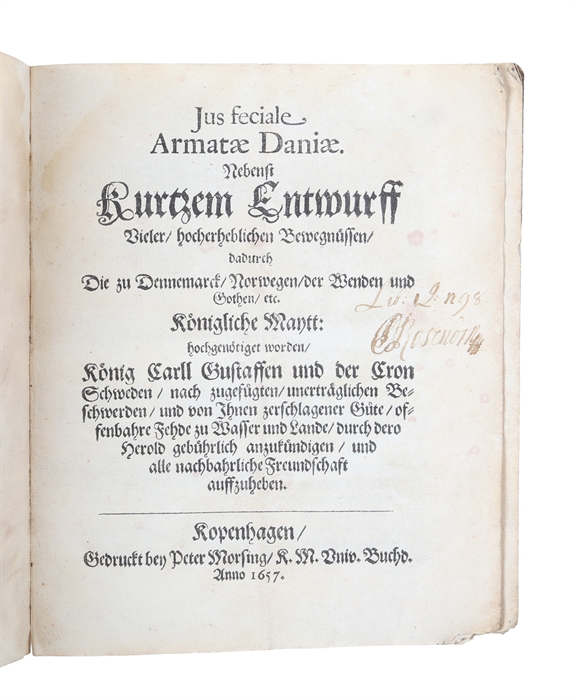 Jus feciale
Armatæ Daniæ.
Nebenst
Kurtzem Entwurff
Vieler/ hocherheblichen Bewegnüssen/
dadurch
Die zu Dennemarck/ Norwegen/ der Wenden und
Gothen/ etc.
Königliche Maytt:
hochgenötiget worden/
König Carll Gustaffen und der Cron
Schweden/ nach zugefügten/ unerträglichen Be-
schwerden/ und von Ihnen zerschlagener Güte/ of-
fenbahre Fehde zu Wasser und Lande/ durch dero
Herold gebührlich anzukündigen/ und
alle nachbahrliche Freundschaft
auffzuheben.
Kopenhagen/
Gedruckt bey Peter Morsing/ K. M. Univ. Buchd.
Anno 1657.